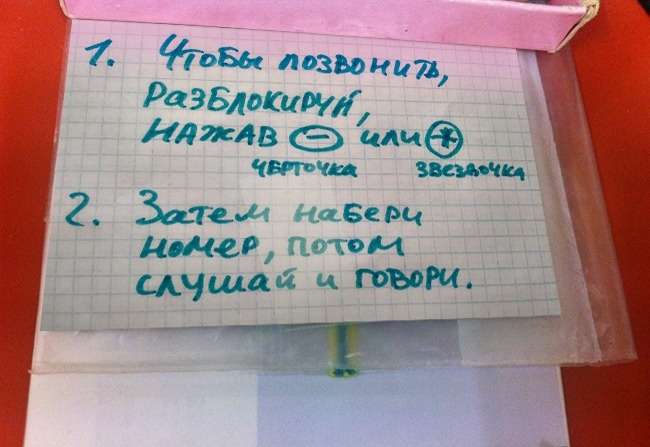 1. Чтобы позвонить,
РАЗБЛОКИРУЙ,
НАЖАВ (-) или (*)
ЧЕРТОЧКА ЗВЕЗДОЧКА
2. Затем набери
номер, потом
слушай и говори.